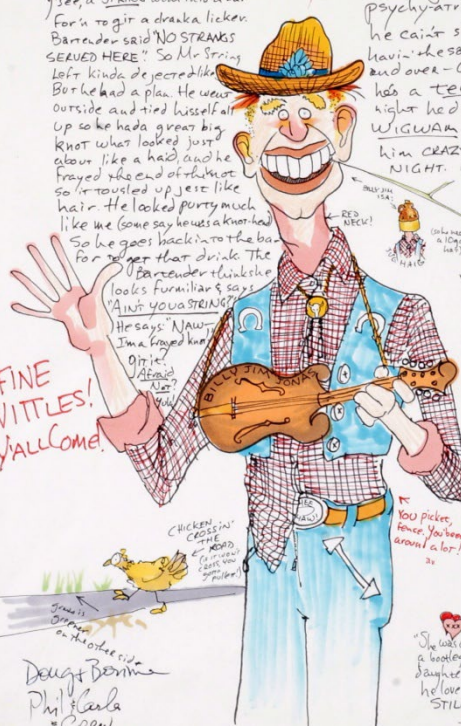 For'n to git a dranka licker.
Bartender said "NO STRANGS
SERVED HERE." So Mr String
Left kinda dejectedlike
But he had a plan. He went
outside and tied hisself all
up so he had a great big
knot what looked just
about like a haid, and he
frayed the end of that knot
so it tousled up jest like
hair. He looked purty much
like me (some say he was a knot-head)
So he goes back in to the bar
for to get that drink. The
Bartender thinks he
looks furmiliar & says
"AIN'T YOU A STRING?"
He says: "NAW-
I'm a frayed knot"
Git it?
Afraid
Not?
psychyatr
he cain't s
havin' the sa
and over-
he's a tee
night he d
WIGWAM
him CRAZ
NIGHT.
BILLY JIM
RED
NECK!
BILLY JIM JONAS
FINE
VITTLES!
Y'ALL COME!
YOU picket,
fence. You been
around a lot!
CHICKEN
CROSSIN'
THE
ROAD
grass is
greener
on the other side
Doug & Bonnie
Phil & Carla
"She was
a bootleg
daughte
he love
STIL